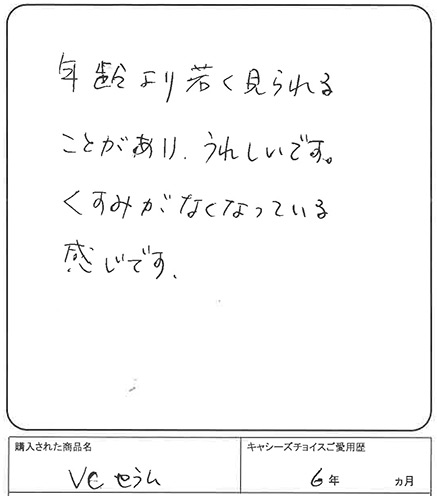 年齢より若く見られる
ことがあり、うれしいです。
くすみがなくなっている
感じです.
購入された商品名
キャシーズチョイスご愛用歴
VCせラム
6年 ヵ月